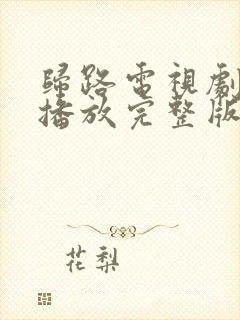 歸路電視劇
播放完整版
花梨